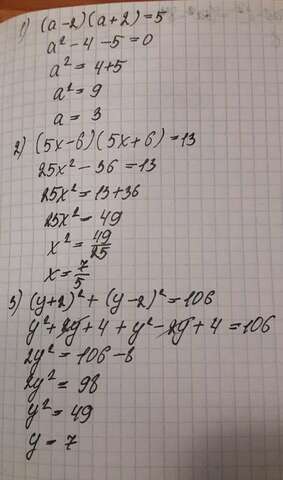 1) (a-2)(a+2)=5
a²-4-5=0
a²=4+5
a²=9
a=3
2) (5x-6)(5x+6)=13
25x²-36=13
25x²=13+36
25x²=49
x²=49/25
x=7/5
3) (y+2)²+(y-2)²=106
y²+2y+4+y²-2y+4=106
2y²=106-8
2y²=98
y²=49
y=7